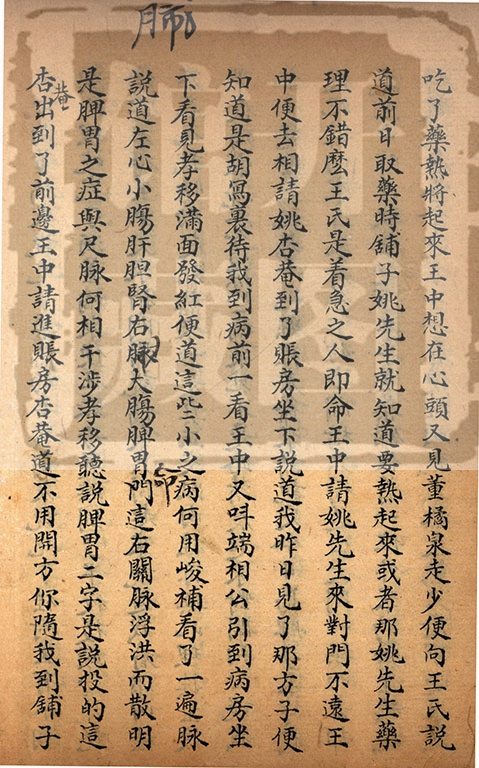 肺
吃了藥熱將起來王中想在心頭又見董橘泉走少便向王氏說
道前日取藥時舖子姚先生就知道要熱起來或者那姚先生藥
理不錯麽王氏是着急之人即命王中請姚先生來對門不遠王
中便去相請姚杏菴到了賬房坐下說道我昨日見了那方子便
知道是胡寫裏待我到病前一看王中又呌端相公引到病房坐
下看見孝移滿面發紅便道這些小之病何用峻補看了一遍脉
說道左心小膓肝胆腎右脉大膓脾胃命門這右關脉浮洪而散明
是脾胃之症與尺脉何相干涉孝移聽說脾胃二字是說投的這
杏菴出到了前邊王中請進賬房杏菴道不用開方你隨我到舖子